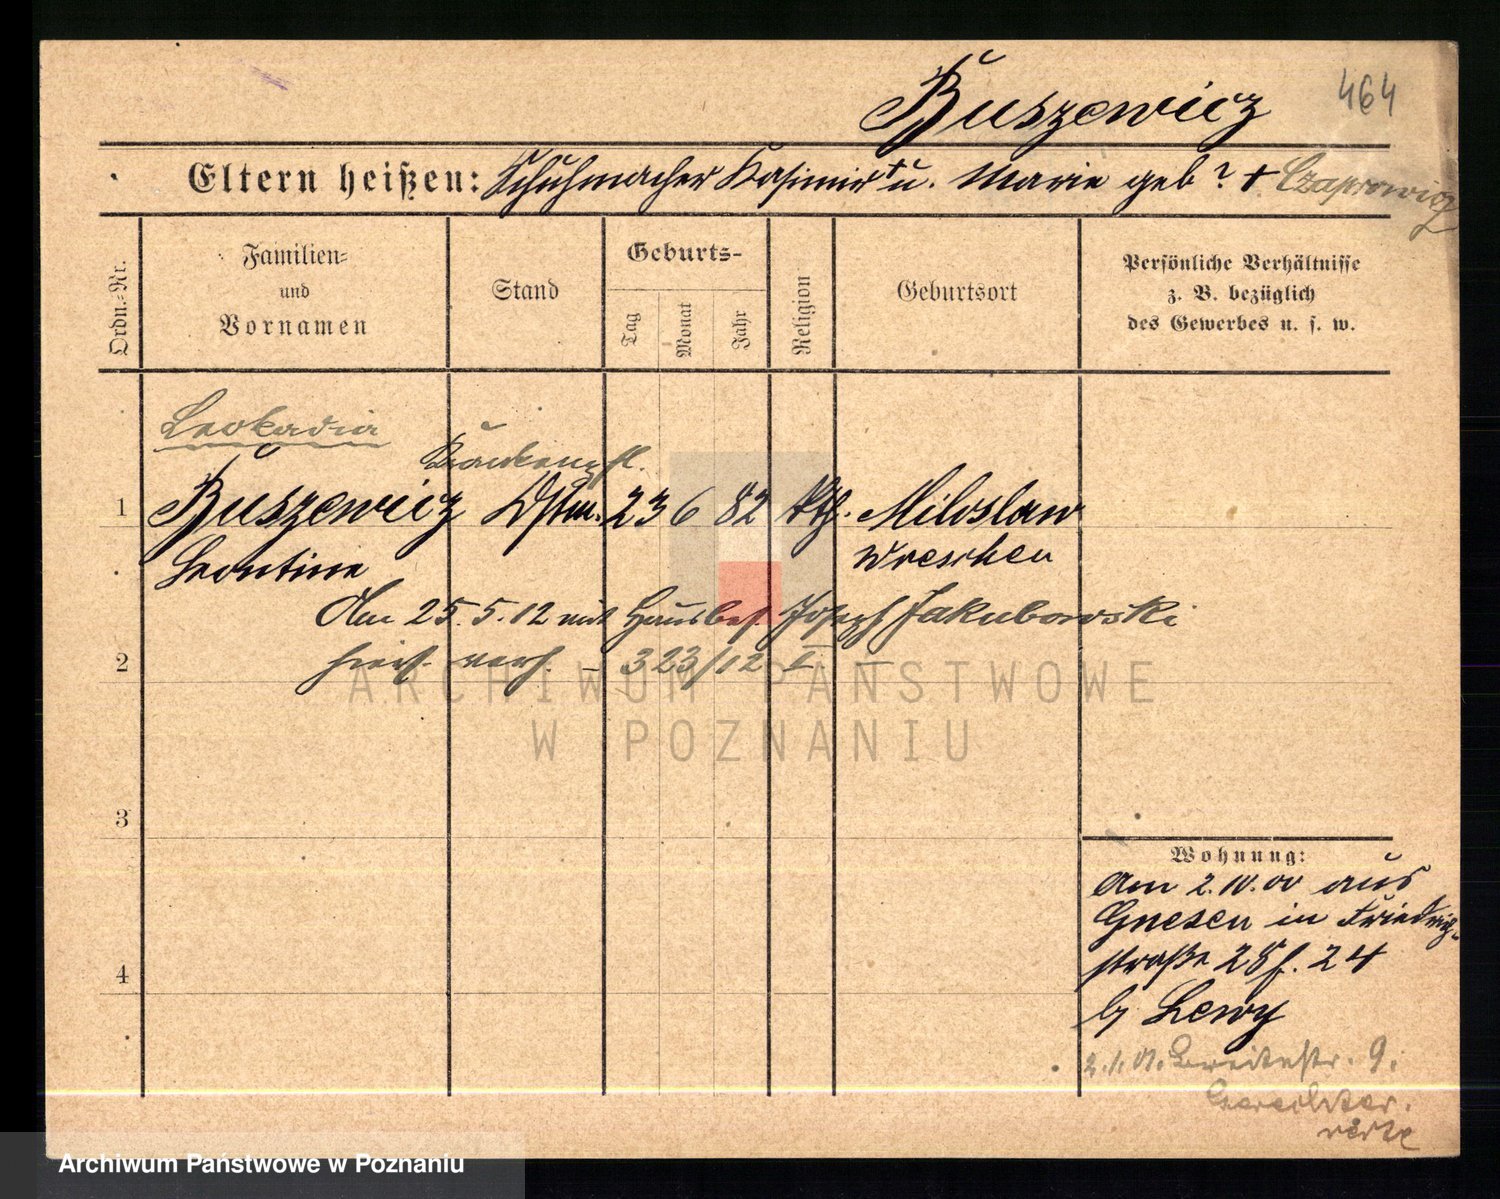 Buszewicz 464
Eltern heißen: Schuhmacher Kasimir + u. Marie geb ? + Czaprowicz
Ordn.-Nr.
Familien-
und
Vornamen
Stand
Geburts-
Tag
Monat
Jahr
Religion
Geburtsort
Persönliche Verhältnisse
z. B. bezüglich
des Gewerbes u. s. w.
Leokadia
Krankenpfl.
1 Buszewicz Dstm. 23 6 82 kth. Miloslaw
Leontine Wreschen
Am 25.5.12 mit Hausbes. Joseph Jakubowski
2 hiers. verh. – 323/12 I –
ARCHIWUM PAŃSTWOWE
W POZNANIU
3
4
Wohnung:
Am 2.10.00 aus
Gnesen in Friedrich-
straße 28 f. 24
b/ Lewy
2.1.01. Breitestr. 9.
Archiwum Państwowe w Poznaniu